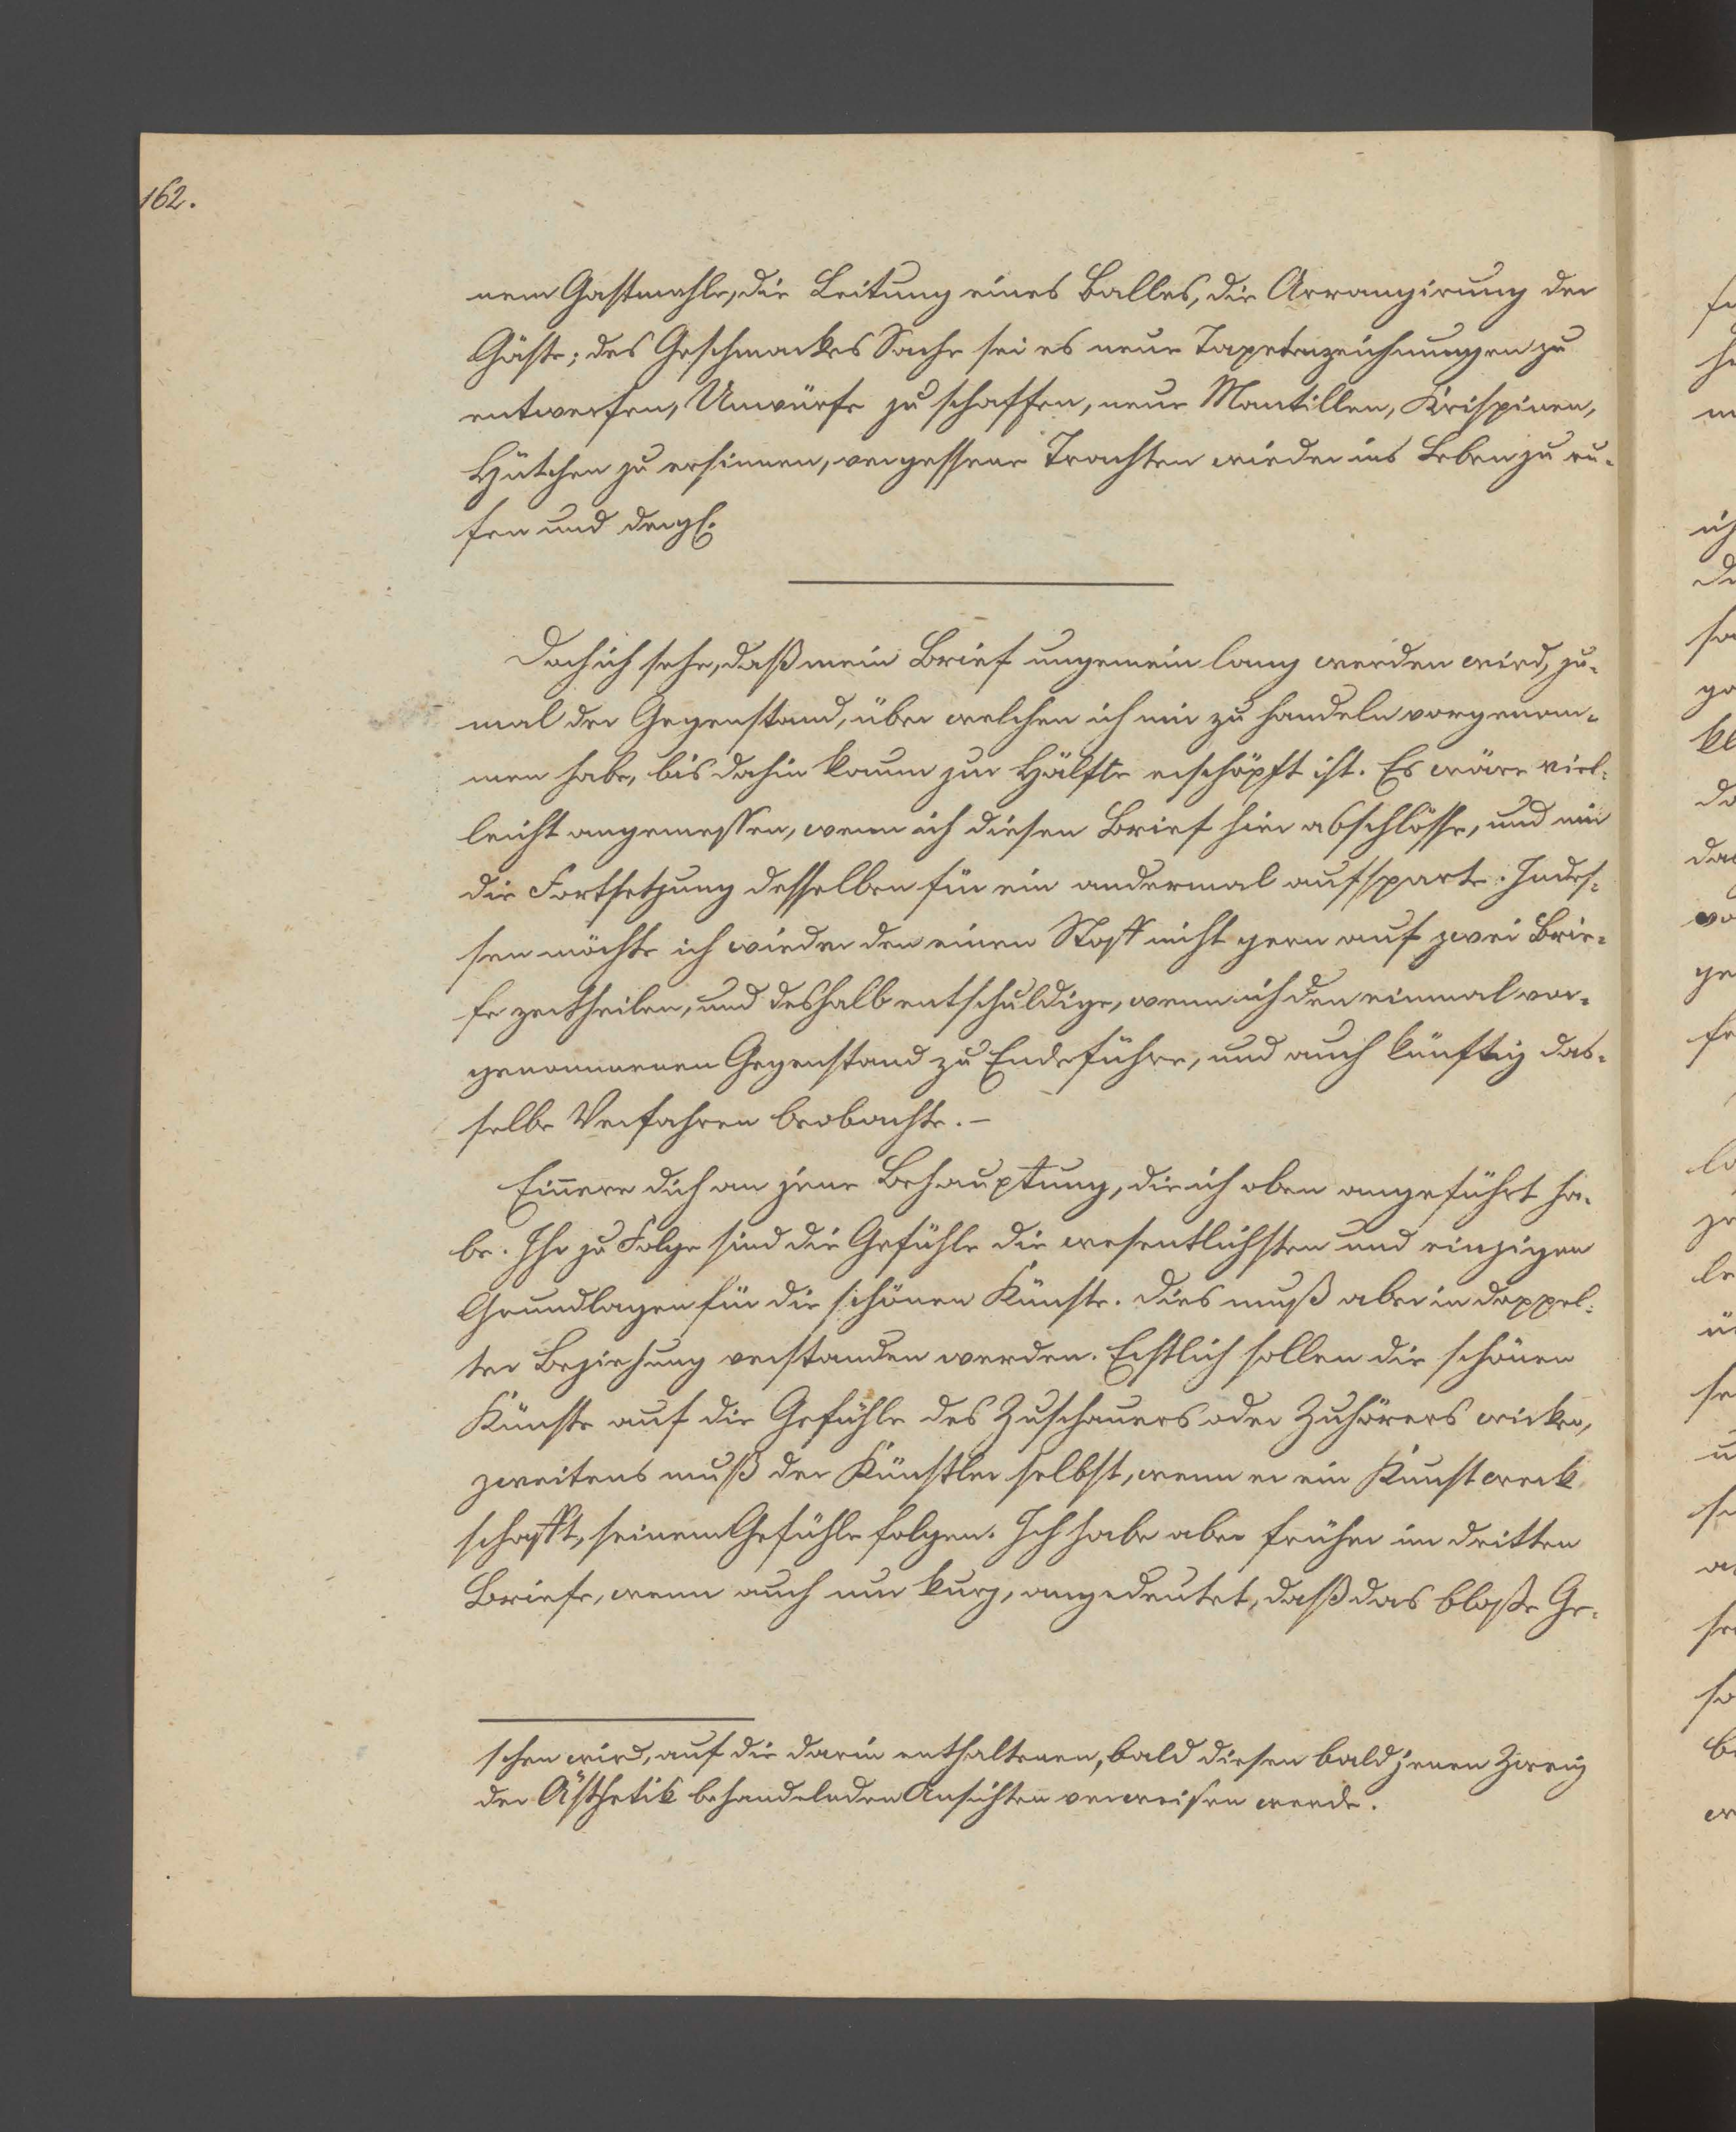 162.
nem Gastmahle, die Leitung eines Balles, die Arrangirung der
Gäste; des Geschmackes Sache sei es neue Tapetenzeichnungen zu
entwerfen, Umwürfe zu schaffen, neue Mantillen, Krispinen,
Hütchen zu ersinnen, vergessene Trachten wieder ins Leben zu ru-
fen und dergl.
Doch ich sehe, daß mein Brief ungemein lang werden wird, zu-
mal der Gegenstand, über welchen ich mir zu handeln vorgenom-
men habe, bis dahin kaum zur Hälfte erschöpft ist. Es wäre viel-
leicht angemessen, wenn ich diesen Brief hier abschlösse, und mir
die Fortsetzung desselben für ein andermal aufsparte. Indes-
sen möchte ich wieder den einen Stoff nicht gern auf zwei Brie-
fe zertheilen, und deshalb entschuldige, wenn ich den einmal vor-
genommenen Gegenstand zu Ende führe, und auch künftig das-
selbe Verfahren beobachte. –
Erinnere dich an jene Behauptung, die ich oben angeführt ha-
be. Ihr zu Folge sind die Gefühle die wesentlichsten und einzigen
Grundlagen für die schönen Künste. Dies muß aber in doppel-
ter Beziehung verstanden werden. Erstlich sollen die schönen
Künste auf die Gefühle des Zuschauers oder Zuhörers wirken,
zweitens muß der Künstler selbst, wenn er ein Kunstwerk
schafft, seinem Gefühle folgen. Ich habe aber früher im dritten
Briefe, wenn auch nur kurz, angedeutet, daß das bloße Ge-
schen wird, auf die darin enthaltenen, bald diesen bald jenen Zweig
der Ästhetik behandelnden Ansichten verweisen werde.